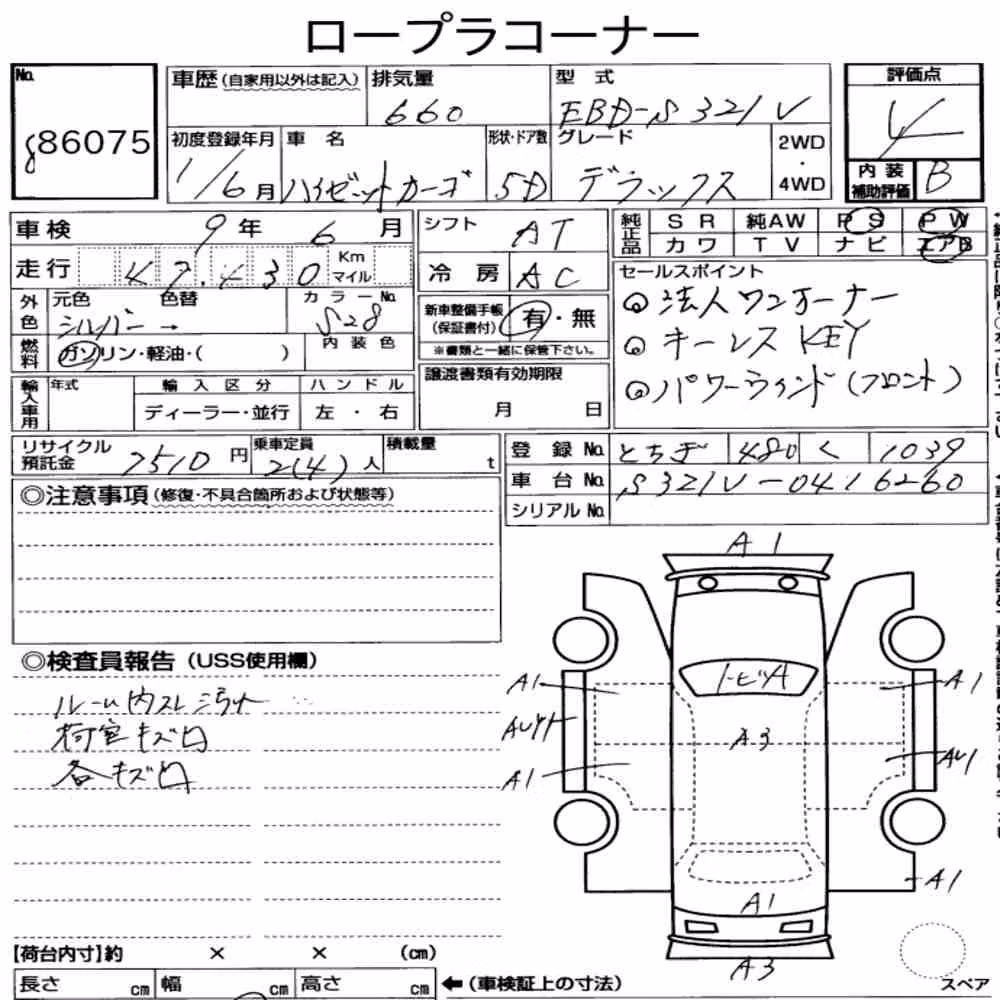 ロープラコーナー
No.
86075
車歴(自家用以外は記入) 排気量 660
型式 EBD-S321V
評価点 4
初度登録年月 1/6月
車名 ハイゼットカーゴ
形状・ドア数 5D
グレード デラックス
2WD・4WD
内装補助評価 B
車検 9年 6月
走行 47,430 Km マイル
外色 元色 シルバー → 色替
カラーNo. S28
燃料 ガソリン・軽油・( )
内装色
輸入車用 年式 輸入区分 ハンドル
ディーラー・並行 左・右
シフト AT
冷房 AC
新車整備手帳(保証書付) 有・無
※書類と一緒に保管下さい。
譲渡書類有効期限
月 日
純正品 SR 純AW PS PW
カワ TV ナビ エアB
セールスポイント
◎法人ワンオーナー
◎キーレスKEY
◎パワーウィンド(フロント)
リサイクル預託金 7510円
乗車定員 2(4)人
積載量 t
登録No. とちぎ 480 く 1039
車台No. S321V-0416260
シリアルNo.
◎注意事項(修復・不具合箇所および状態等)
◎検査員報告(USS使用欄)
ルーム内スレ汚れ
荷室キズ凹
各キズ凹
A1
トビA
A1
A1
A3
A1
AU1
A1
A1
A3
【荷台内寸】約 × × (cm)
長さ cm 幅 cm 高さ cm
←(車検証上の寸法)
スペア